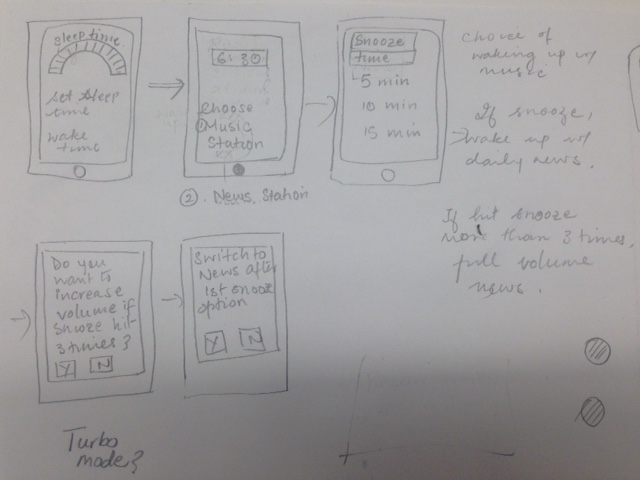 Sleep time
set sleep
time
wake
time
6:30
Choose
① Music
Station
②. News Station
Snooze
time
5 min
10 min
15 min
choice of
waking up w/
music
If snooze,
wake up w/
daily news.
If hit snooze
more than 3 times,
full volume
news.
Do you
want to
increase
volume if
snooze hit
3 times?
Y N
Switch to
News after
1st snooze
option
Y N
Turbo
mode?